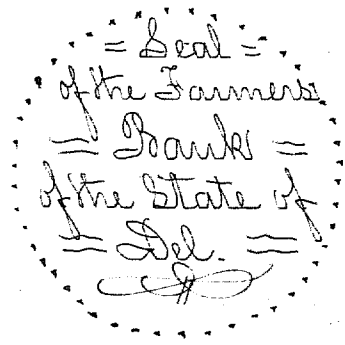 = Seal =
of the Farmers
= Bank =
of the State of
= Del. =